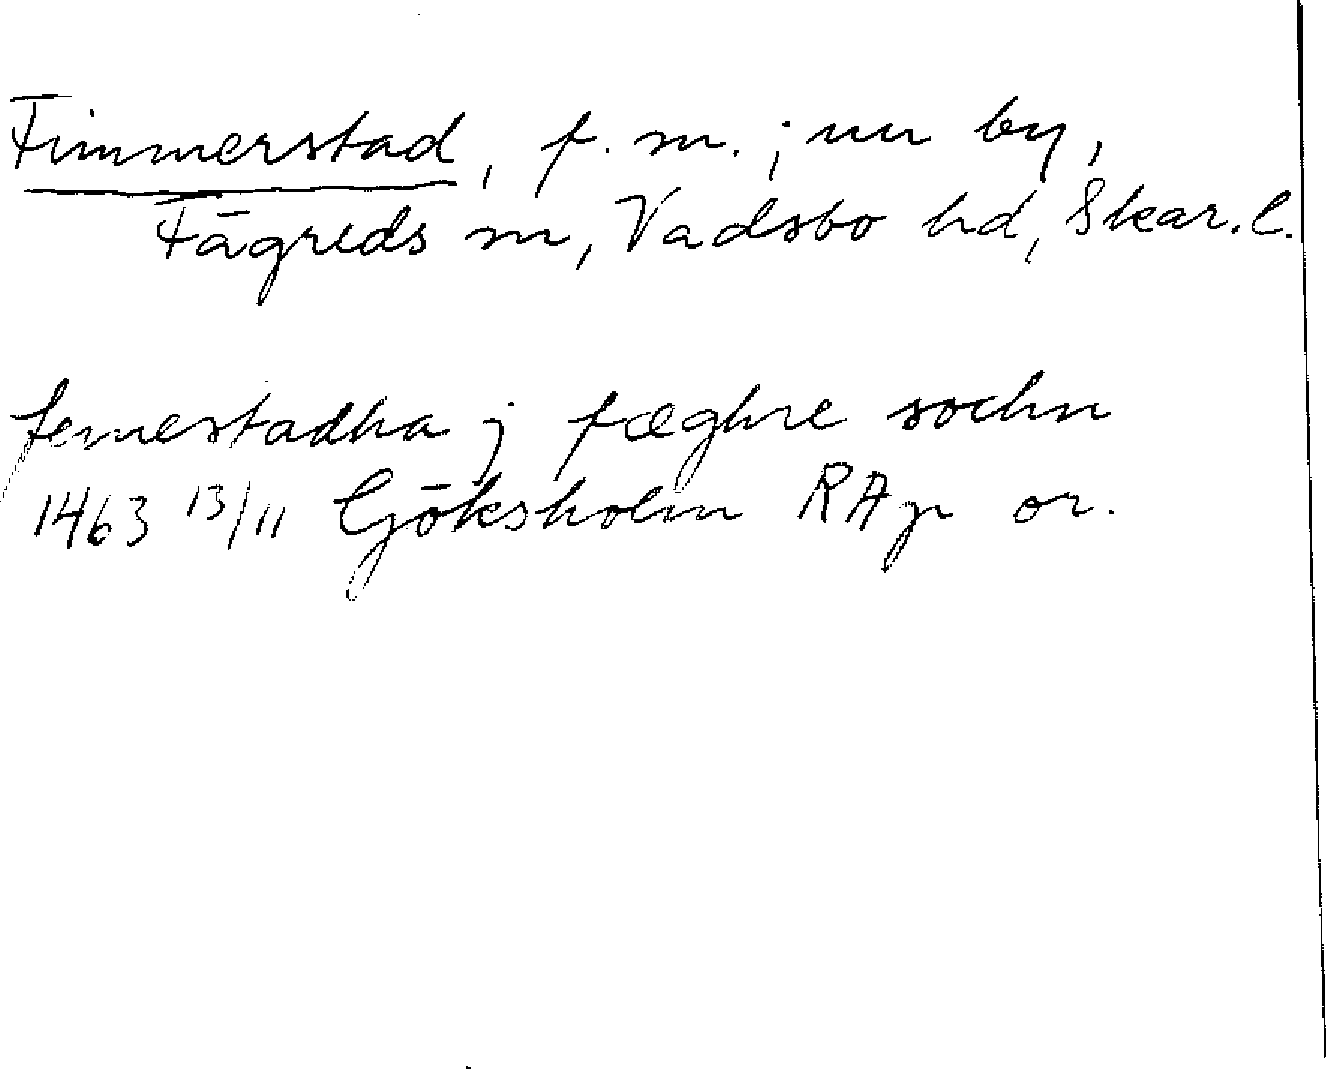 Fimmerstad, f. m.; nu by,
Fägreds sn, Vadsbo hd, Skar. l.
femestadha j fæghre sochn
1463 13/11 Göksholm RAp or.